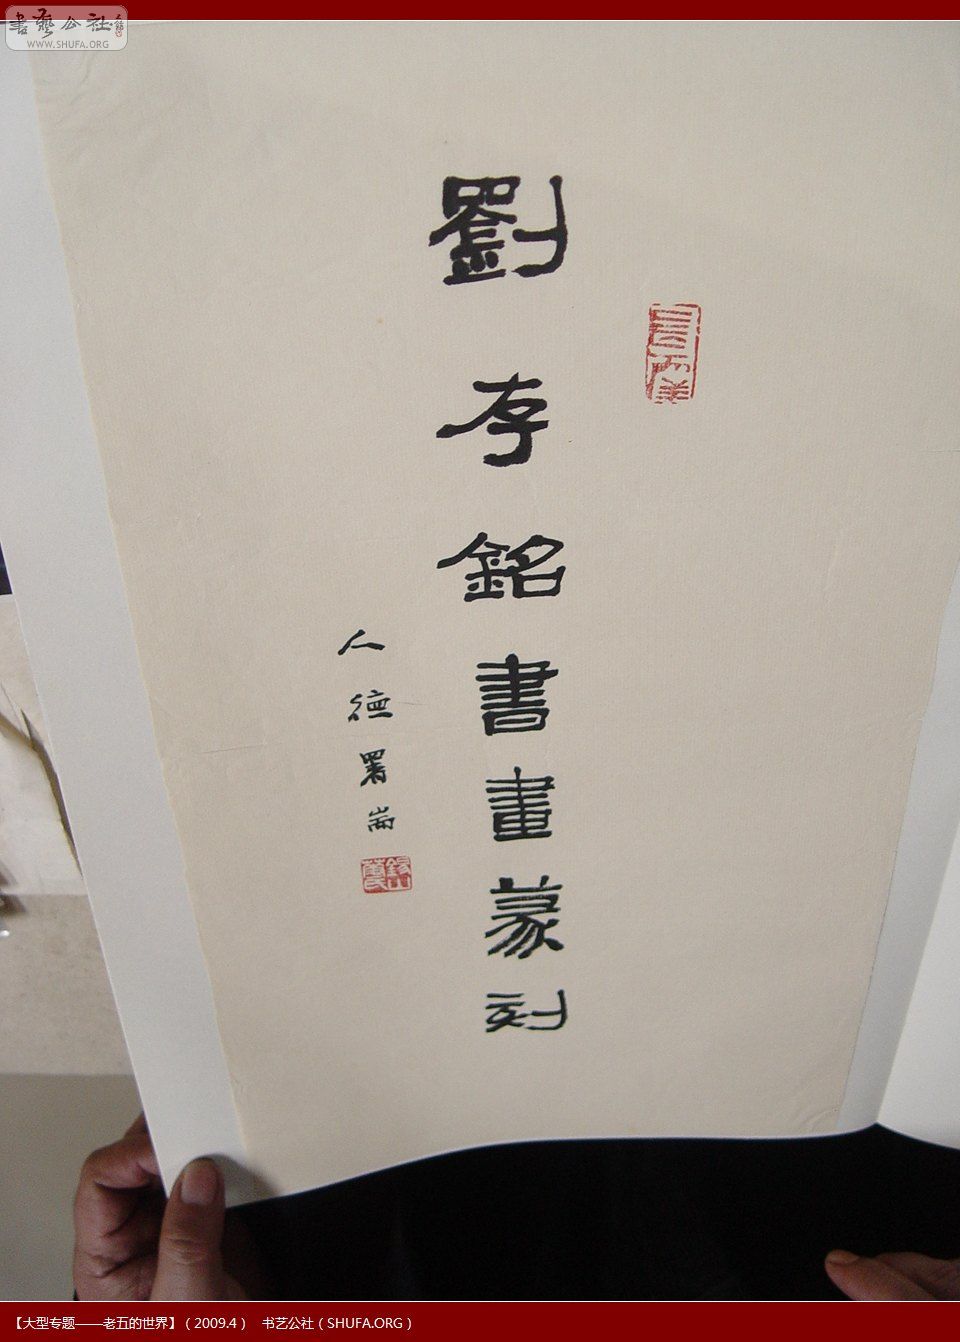 書藝公社
WWW.SHUFA.ORG
劉存銘書畫篆刻
人德署耑
【大型专题——老五的世界】（2009.4） 书艺公社（SHUFA.ORG）